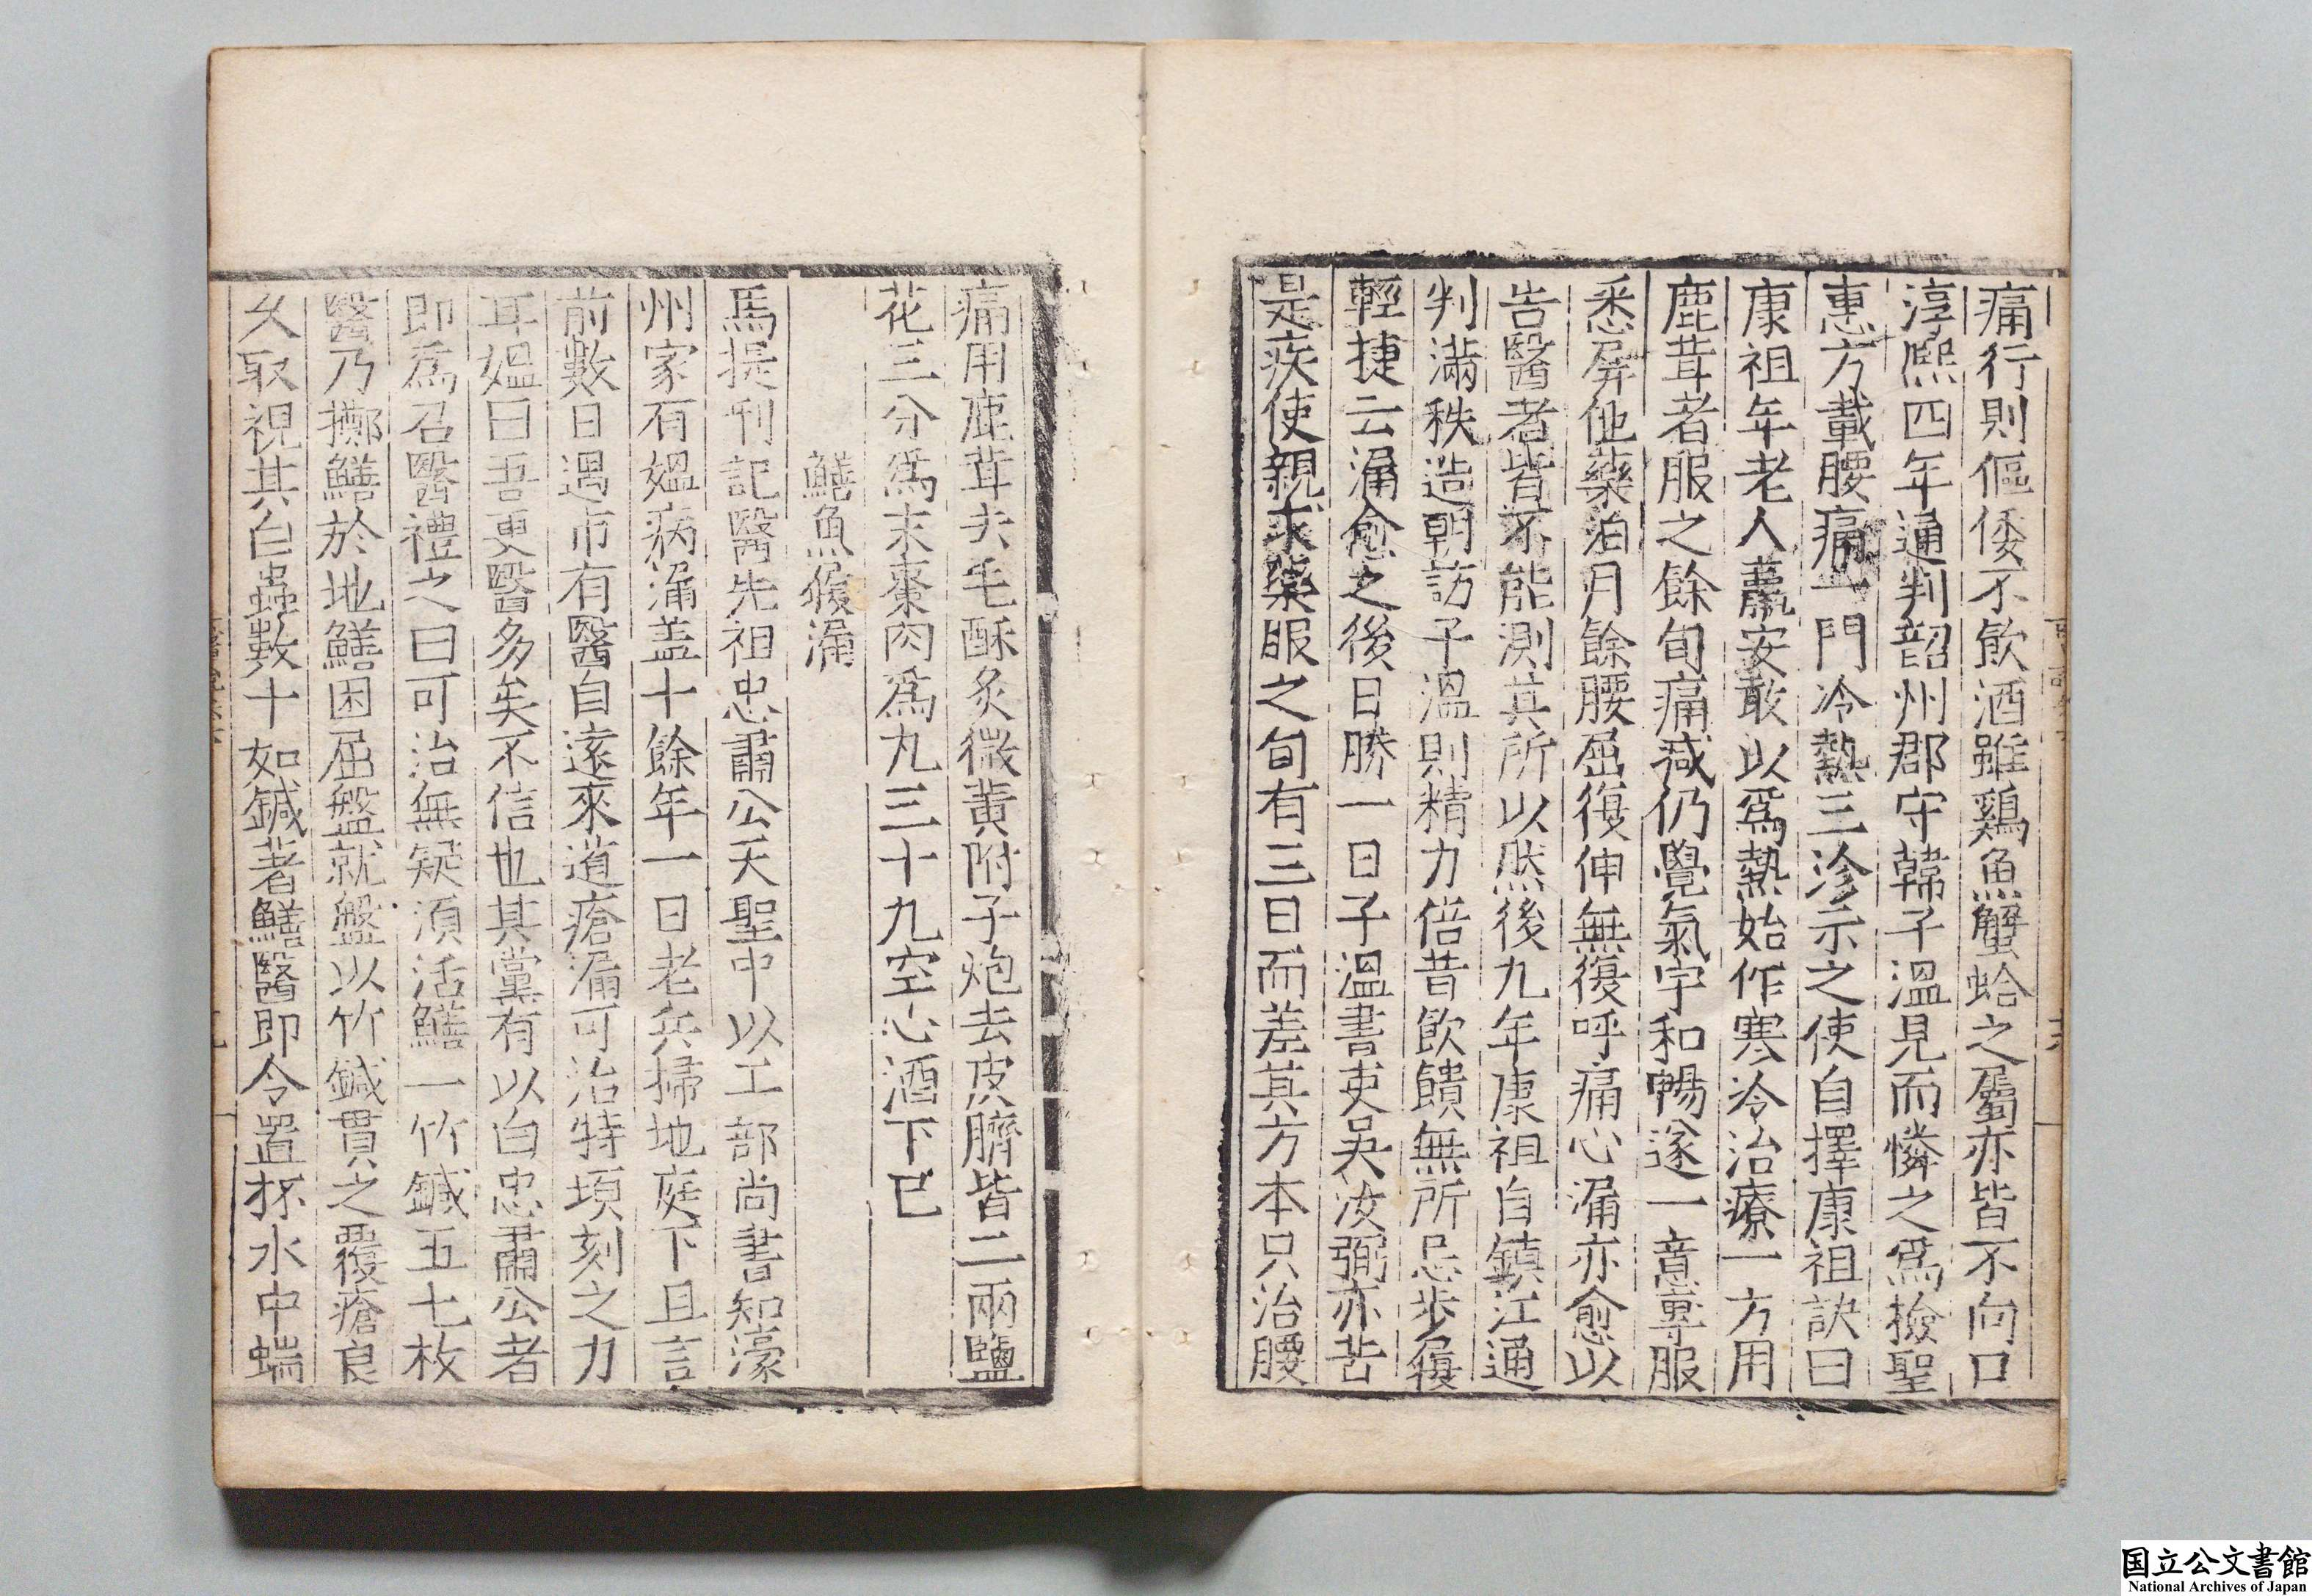 痛行則傴僂不飲酒雖鷄魚蟹蛤之屬亦皆不向口
淳熈四年通判韶州郡守韓子溫見而憐之爲撿聖
惠方載腰痛一門冷熱三沴示之使自擇康祖訣曰
康祖年老人羸安敢以爲熱始作寒冷治療一方用
鹿茸者服之餘旬痛减仍覺氣宇和暢遂一意專服
悉屏他藥洎月餘腰屈復伸無復呼痛心漏亦愈以
告醫者皆不能測其所以然後九年康祖自鎮江通
判滿秩造朝訪子溫則精力倍昔飲饋無所忌步履
輕捷云漏愈之後日勝一日子溫書吏吳汝弼亦苦
是疾使親求藥服之旬有三日而差其方本只治腰
痛用鹿茸去毛酥炙微黃附子炮去皮臍皆二兩鹽
花三分爲末棗肉爲丸三十丸空心酒下已
鱔魚覆漏
馬提刑記醫先祖忠肅公天聖中以工部尚書知濠
州家有媼病漏盖十餘年一日老兵掃地庭下且言
前數日過市有醫自遠來道瘡漏可治特頃刻之力
耳媼曰吾更醫多矣不信也其黨有以白忠肅公者
即爲召醫禮之曰可治無疑須活鱔一竹鍼五七枚
醫乃擲鱔於地鱔困屈盤就盤以竹鍼貫之覆瘡良
久取視其白蟲數十如鍼著鱔醫即令置杯水中蠕
国立公文書館
National Archives of Japan